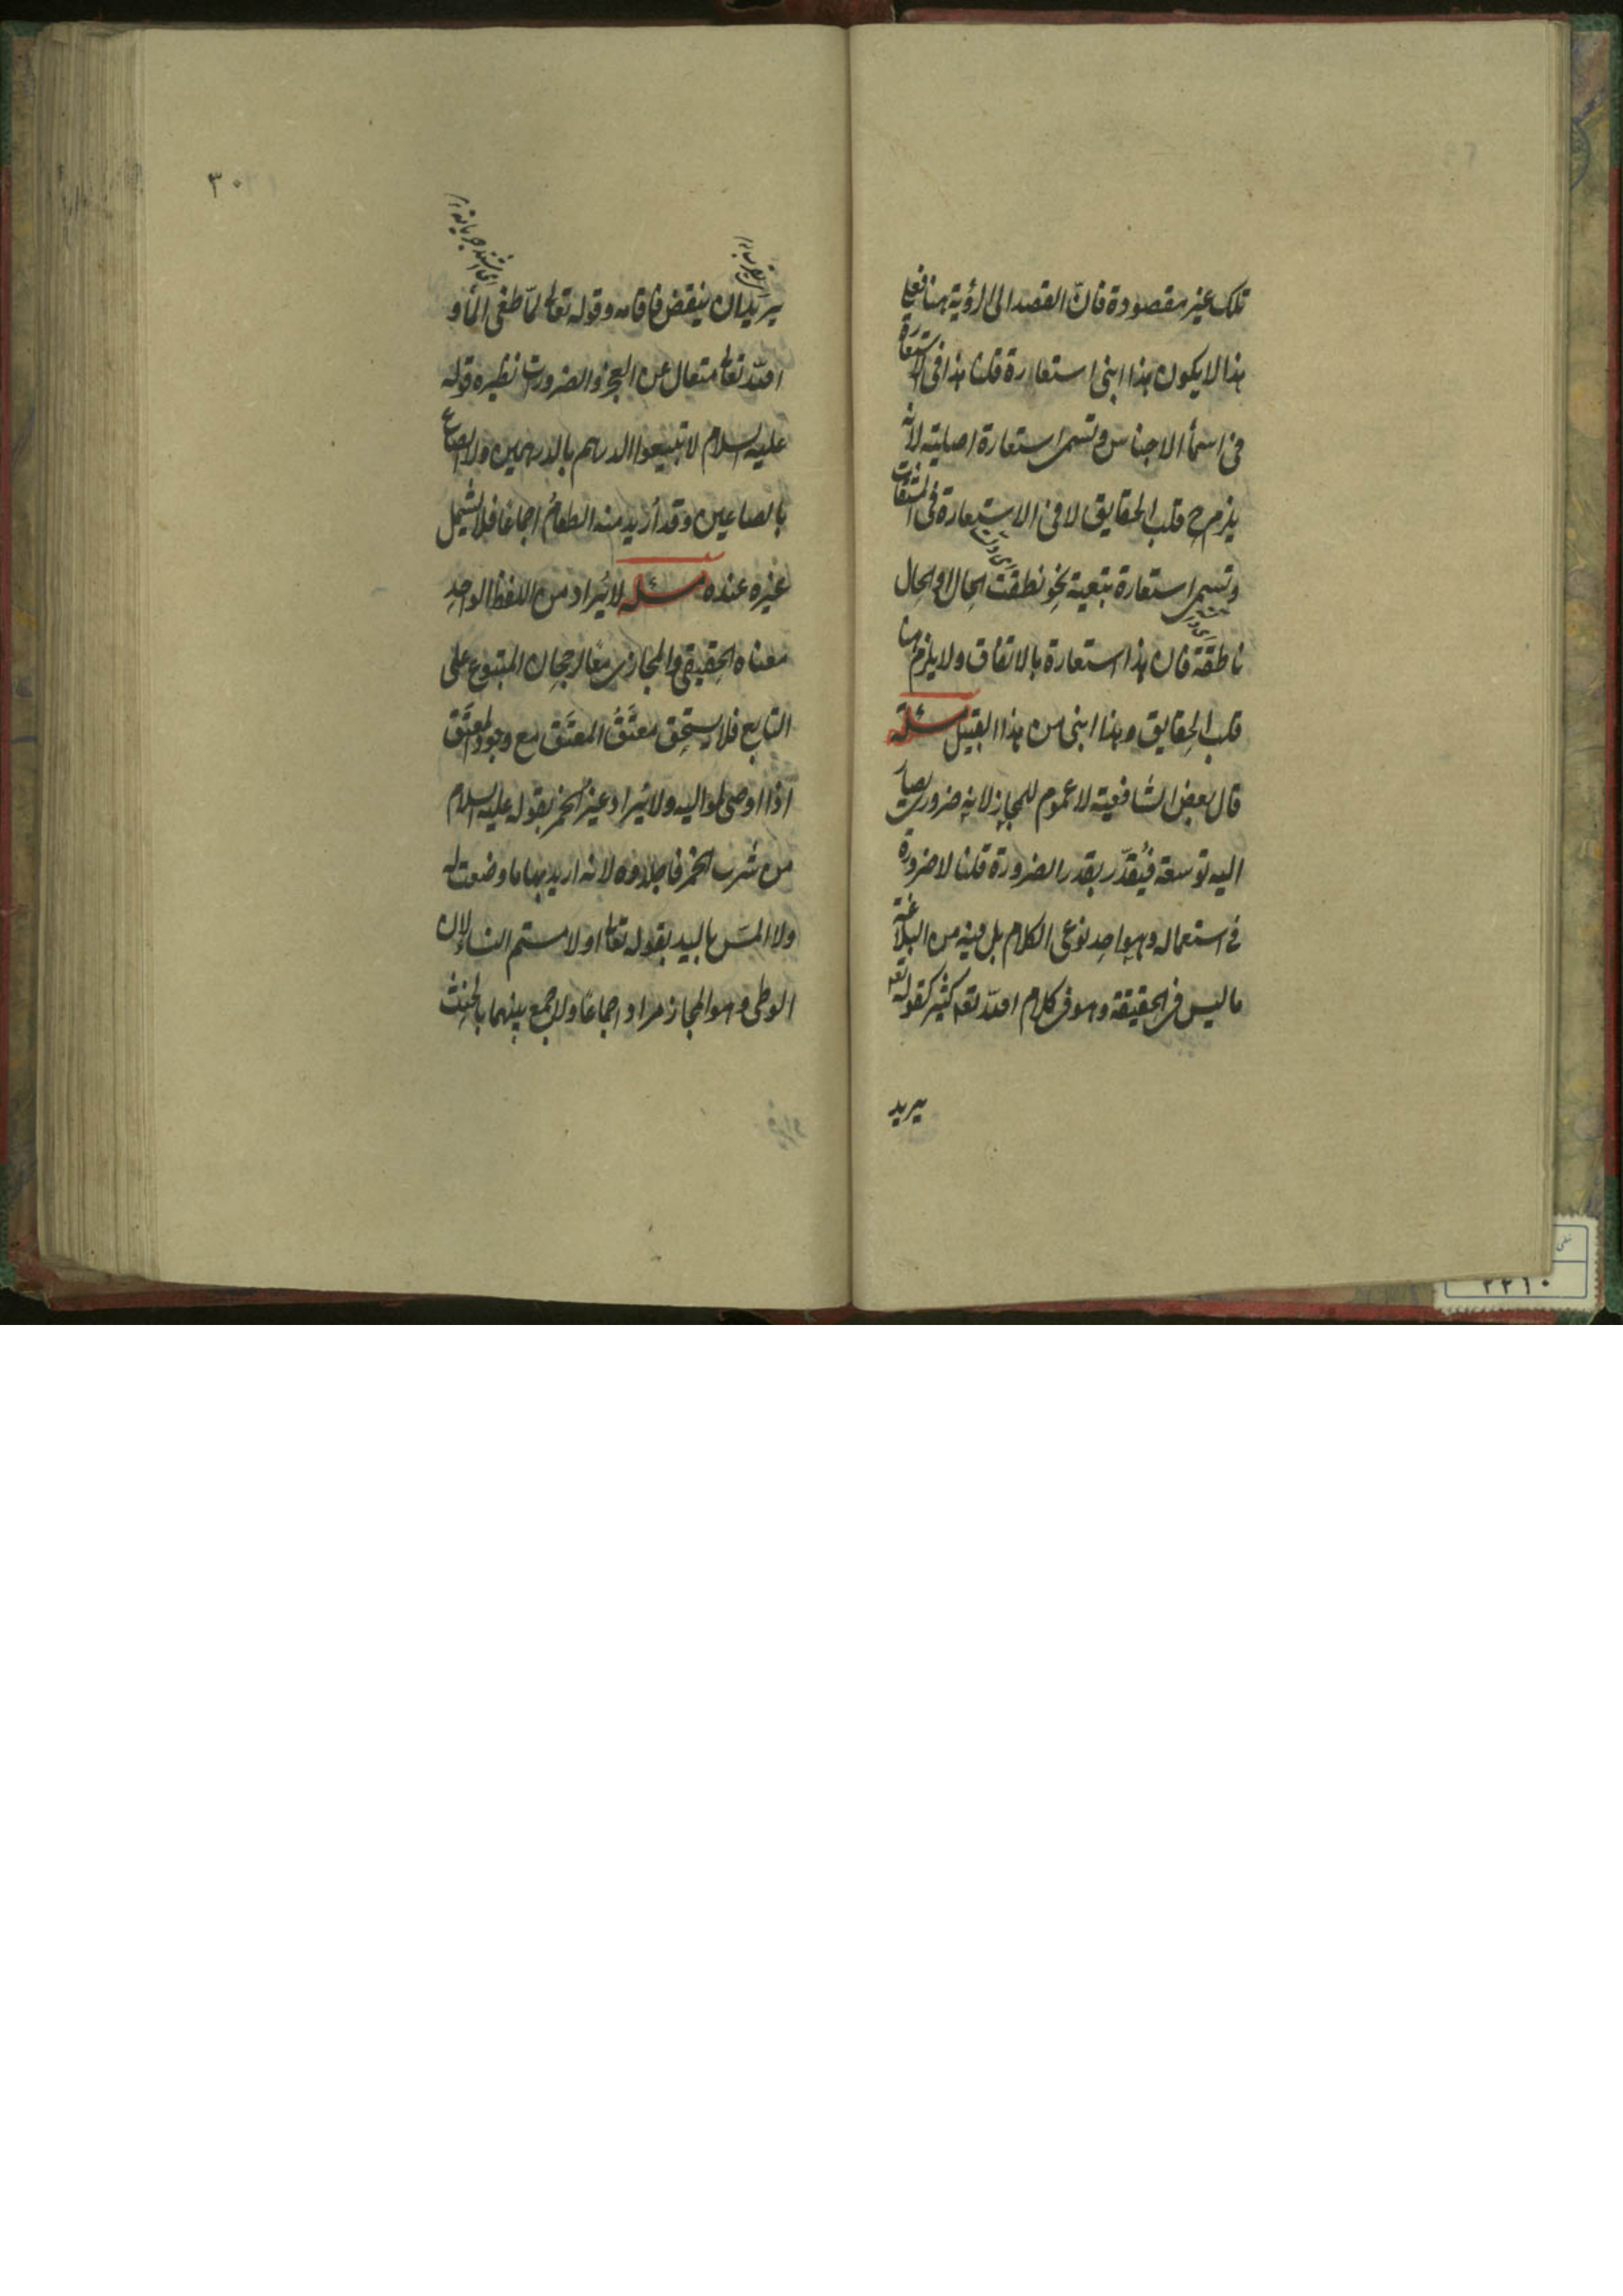 تلك غير مقصودة فانّ القصد الى الرؤية هنا فعلى
هذا لا يكون هذا ابنى استعارة قلنا هذا فى الاستعارة
فى اسماء الاجناس وتسمى استعارة اصلية لانه
يلزم ح قلب الحقايق لا فى الاستعارة فى المشتقات
وتسمى استعارة تبعية نحو نطقت الحال او الحال
ناطقة فان هذا استعارة بالاتفاق ولا يلزم هنا
قلب الحقايق وهذا ابنى من هذا القبيل مسئلة
قال بعض الشافعية لا عموم للمجاز لانه ضرورى يصار
اليه توسعة فيُقدّر بقدر الضرورة قلنا لا ضرورة
فى استعماله وهو احد نوعى الكلام بل فيه من البلاغة
ما ليس فى الحقيقة وهو فى كلام الله تعه كثير كقوله تعه
يريد
٣٠
يريد ان ينقض فاقامه وقوله تعالى لمّا طغى الماء و
الله تعالى متعال عن العجز والضرورات نظيره قوله
عليه السلام لا تبيعوا الدرهم بالدرهمين ولا الصاع
بالصاعين وقد أريد منه الطعام اجماعا فلا يشمل
غيره عنده مسئله لا يُراد من اللفظ الواحد
معناه الحقيقى والمجازى معًا لرجحان المتبوع على
التابع فلا يستحق معتَقُ المعتَق مع وجود المعتَق
اذا اوصى لمواليه ولا يُراد غير الخمر بقوله عليه السلام
من شرب الخمر فاجلدوه لانه اريد بها ما وضعت له
ولا المسّ باليد بقوله تعالى او لامستم النساء لان
الوطى وهو المجاز مراد اجماعًا ولا جمع بينهما بالحنث
٢٢١٠